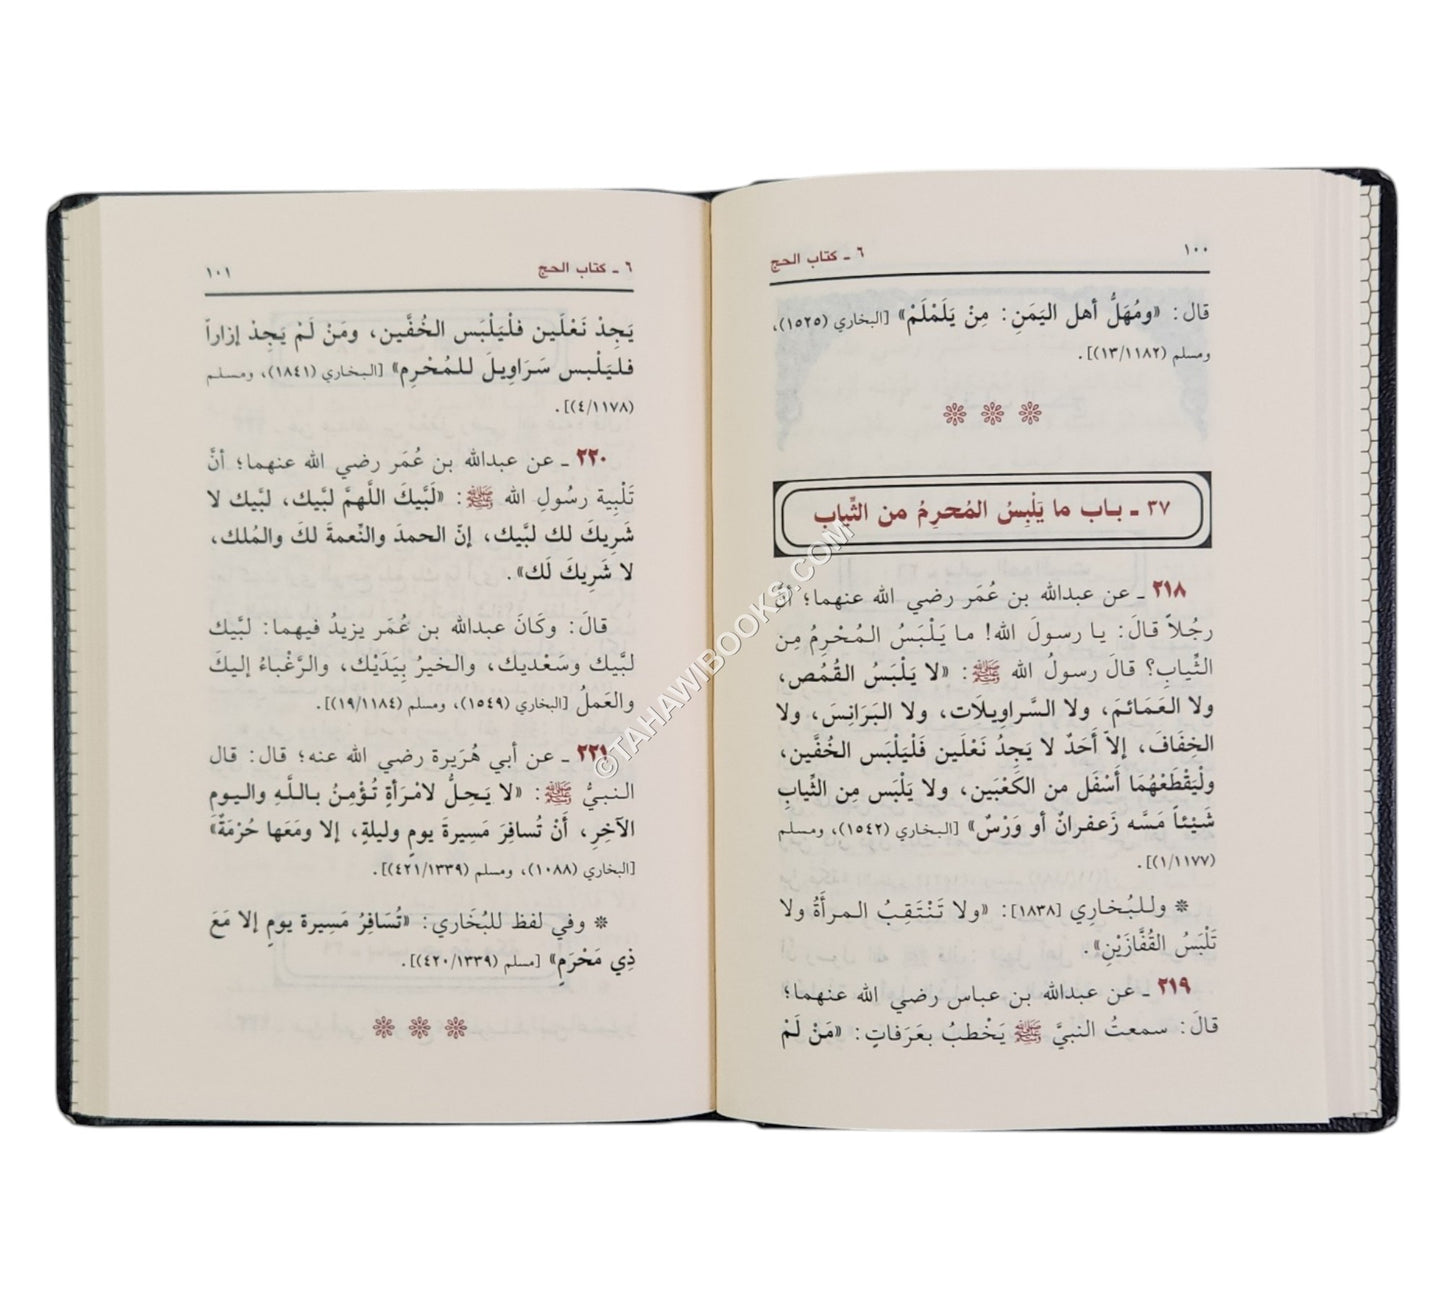 ٦ ـ كتاب الحج
١٠٠
قال: «ومُهَلُّ أهل اليَمَنِ: مِنْ يَلَمْلَمْ» [البخاري (١٥٢٥)،
ومسلم (١٣/١١٨٢)].
٣٧ ـ باب ما يَلْبِسُ المُحرِمُ من الثِّيابِ
٢١٨ ـ عن عبدالله بن عُمَر رضي الله عنهما؛ أنَّ
رجُلاً قالَ: يا رسولَ الله! ما يَلْبَسُ المُحْرِمُ مِن
الثِّيابِ؟ قالَ رسولُ الله ﷺ: «لا يَلْبَسُ القُمُص،
ولا العَمَائمَ، ولا السَّراويلَات، ولا البَرَانِسَ، ولا
الخِفَافَ، إلاَّ أَحَدٌ لا يَجِدُ نَعْلَين فَلْيَلْبَس الخُفَّين،
ولْيَقْطَعْهُمَا أَسْفَل من الكَعْبَين، ولا يَلْبَس مِن الثِّيابِ
شَيْئاً مَسَّه زَعفرانٌ أو وَرْسٌ» [البخاري (١٥٤٢)، ومسلم
(١/١١٧٧)].
❊ وللبُخاري [١٨٣٨]: «ولا تَنْتَقِبُ المرأَةُ ولا
تَلْبَسُ القُفَّازَيْنِ».
٢١٩ ـ عن عبدالله بن عباس رضي الله عنهما؛
قالَ: سمعتُ النبيَّ ﷺ يَخْطبُ بعَرَفاتٍ: «مَنْ لَمْ
٦ ـ كتاب الحج
١٠١
يَجِدْ نَعْلَين فلْيَلْبَس الخُفَّين، ومَنْ لَمْ يَجِدْ إزاراً
فليَلْبس سَرَاوِيلَ للمُحْرِم» [البخاري (١٨٤١)، ومسلم
(٤/١١٧٨)].
٢٢٠ ـ عن عبدالله بن عُمَر رضي الله عنهما؛ أنَّ
تَلْبِية رسُولِ الله ﷺ: «لَبَّيكَ اللَّهمَّ لبَّيك، لبَّيك لا
شَرِيكَ لك لبَّيك، إنّ الحمدَ والنِّعمةَ لكَ والمُلك،
لا شَرِيكَ لَك».
قالَ: وكَانَ عبدالله بن عُمَر يزيدُ فيهما: لبَّيك
لبَّيك وسَعْديك، والخيرُ بِيَدَيْك، والرَّغْباءُ إليكَ
والعَملُ [البخاري (١٥٤٩)، ومسلم (١٩/١١٨٤)].
٢٢١ ـ عن أبي هُرَيرة رضي الله عنه؛ قالَ: قال
النبيُّ ﷺ: «لا يَحِلُّ لامْرَأةٍ تُؤْمِنُ باللَّهِ واليومِ
الآخِرِ، أَنْ تُسافِرَ مَسِيرةَ يومٍ وليلةٍ، إلا ومَعَها حُرْمَةٌ»
[البخاري (١٠٨٨)، ومسلم (٤٢١/١٣٣٩)].
❊ وفي لفظ للبُخَاري: «تُسَافِرُ مَسِيرة يومٍ إلا مَعَ
ذِي مَحْرَمٍ» [مسلم (٤٢٠/١٣٣٩)].
©TAHAWIBOOKS.COM